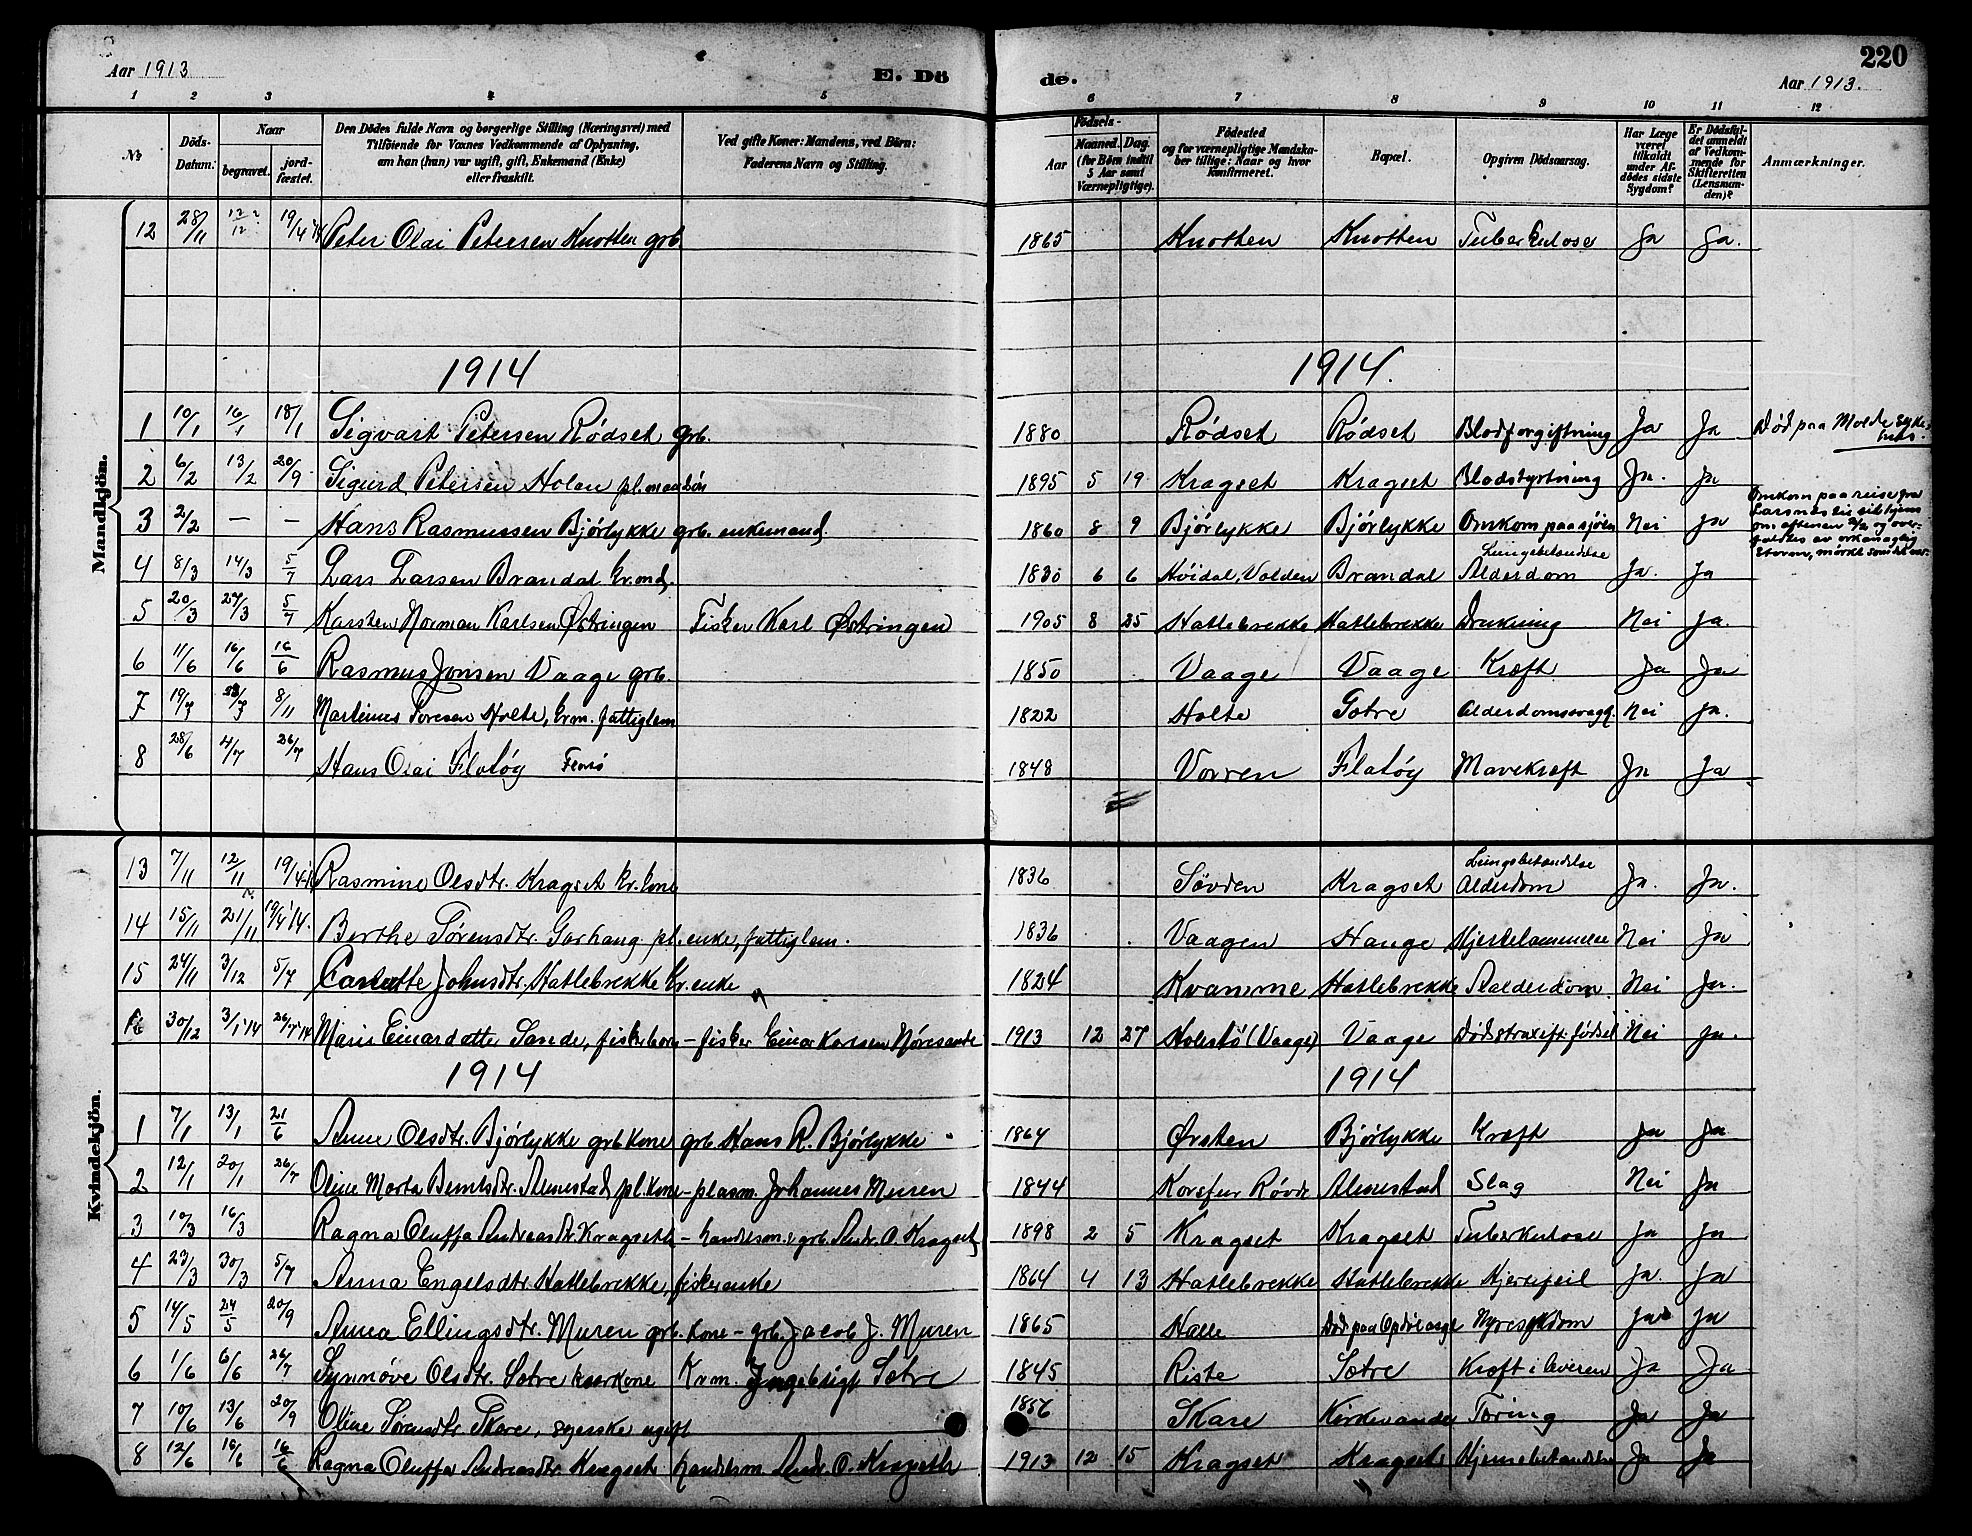 220
Aar 1913 E. Dö de. Aar 1913.
1 2 3 4 5 6 7 8 9 10 11 12
№ Döds-Datum. Naar begravet. jord-fæstet. Den Dödes fulde Navn og borgerlige Stilling (Næringsvei) med Tilföiende for Voxnes Vedkommende af Oplysning, om han (hun) var ugift, gift, Enkemand (Enke) eller fraskilt. Ved gifte Koner: Mandens, ved Börn: Faderens Navn og Stilling. Födsels- Aar Maaned. Dag. (for Börn indtil 5 Aar samt Værnepligtige). Födested og for værnepligtige Mandskaber tillige: Naar og hvor konfirmeret. Bopæl. Opgiven Dödsaarsag. Har Læge været tilkaldt under Afdödes sidste Sygdom? Er Dödsfaldet anmeldt af Vedkommende for Skifteretten (Lensmanden)? Anmærkninger.
Mandkjön.
12 28/11 19/4 14 Peter Olai Petersen Knotten grb 1865 Knotten Knotten Tuberkulose Ja Ja.
1914 1914.
1 10/1 16/1 18/1 Sigvart Petersen Rødset grb. 1880 Rødset Rødset Blodforgiftning Ja Ja Død paa Molde Sykehus.
2 6/2 13/2 20/9 Sigurd Petersen Holen pl.mandsøn 1895 5 19 Kragset Kragset Blodstyrtning Ja. Ja
3 2/2 — — Hans Rasmussen Bjørlykke grb. enkemand. 1860 8 9 Bjørlykke Bjørlykke Omkom paa sjøen Nei Ja Omkom paa reise fra Larsnes til sit hjem om aftenen 2/2 og overfaldes av orkanaglig Storm, mørkt som det var.
4 8/3 14/3 5/7 Lars Larsen Brandal kr.md. 1830 6 6 Hvidal, Volden Brandal Lungebetændelse Alderdom Ja. Ja
5 20/3 27/3 5/7 Karsten Norman Karlsen Østringen Fisker Karl Østringen 1905 8 25 Hatlebrekke Hatlebrekke Drukning Nei Ja.
6 11/6 16/6 16/6 Rasmus Jonsen Vaage grb. 1850 Vaage Vaage Kræft Ja Ja
7 8/11 Martinus Toresen Holte, krm. fattiglem 1822 Holte Sætre Alderdomssvagh. Nei Ja.
8 28/6 4/7 26/7 Hans Olai Flatøy 1848 Vorren Flatøy Mavekræft Ja Ja
Kvindekjön.
13 7/11 12/11 19/4-14 Rasmine Olsdtr. Kragset kr. kone 1836 Søvden Kragset Lungebetændelse Alderdom Ja. Ja.
14 15/11 21/11 19/4 14. Berthe Sørensdtr. Garhaug pl. enke, fattiglem. 1836 Vaagen Hauge Hjertelammelse Nei Ja
15 24/11 3/12 5/7 Johnsdtr. Hatlebrekke kr. enke 1824 Kvamme Hatlebrekke Aalderdom. Nei Ja.
16 30/12 3/1 14 26/7 14 Marie Einardatter Sande, fiskerbarn – fisker Einar Karlsen Nøresande 1913 12 27 Holestø (Vaage) Vaage Død strax eft. fødsel Nei Ja.
1914 1914
1 7/1 13/1 21/6 Anne Olsdtr. Bjørlykke grb kone grb Hans R. Bjørlykke 1864 Ørsten Bjørlykke Kræft Ja Ja
2 12/1 20/1 26/7 Oline Marta Berntsdtr. Almestad pl. kone – plasm. Johannes Muren 1844 Korsfur Røvde Almestad Slag Nei Ja
3 10/3 16/3 Ragna Oluffa Andreasdtr. Kragseth – handelsm. & grb. Andr. O. Kragset 1898 2 5 Kragset Kragset Tuberkulose Ja Ja
4 23/3 30/3 5/7 Anna Engelsdtr. Hatlebrekke, fiskerenke 1864 4 13 Hatlebrekke Hatlebrekke Hjertefeil Ja. Ja
5 14/5 24/5 20/9 Anna Ellingsdtr. Muren grb. kone – grb. Jacob J. Muren 1865 Halle Død paa Opdølasyl Nyresykdom Ja Ja
6 1/6 6/6 26/7 Synnøve Olsdtr. Sætre kaarkone Krm. Ingebrigt Sætre 1845 Riste Sætre Kræft i leveren Ja Ja
7 10/6 13/6 20/9 Oline Sørensdtr. Skare, syerske ugift 1856 Skare Tæring Ja Ja
8 12/6 16/6 16/6 Ragna Oluffa Andreasdtr Kragset handelsm. Andr. O. Kragseth 1913 12 15 Kragset Kragset Hjernebetændelse Ja Ja